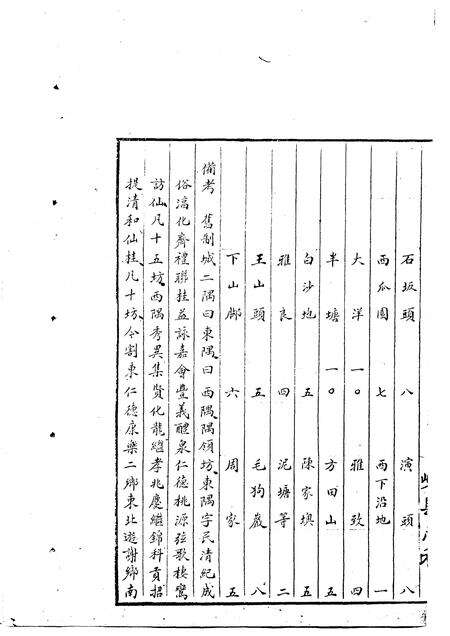 石坂頭 八 演頭 八
西瓜園 七 西下沿地 一
大洋 一〇 雅致 四
半塘 一〇 方田山 五
白沙地 五 陳家墺 五
雅良 四 泥塘等 二
王山頭 五 毛狗巖 八
下山腳 六 周家 五
備考 舊制城二隅曰東隅曰西隅隅領坊東隅字民清紀成
俗滈化齊禮聯桂益詠嘉會豐義醴泉仁德桃源弦歌棲鸞
訪仙凡十五坊西隅秀異集賢化龍繼孝兆慶繼錦科貢招
提清和仙桂凡十坊今割東仁德康樂二鄉東北遊謝鄉南